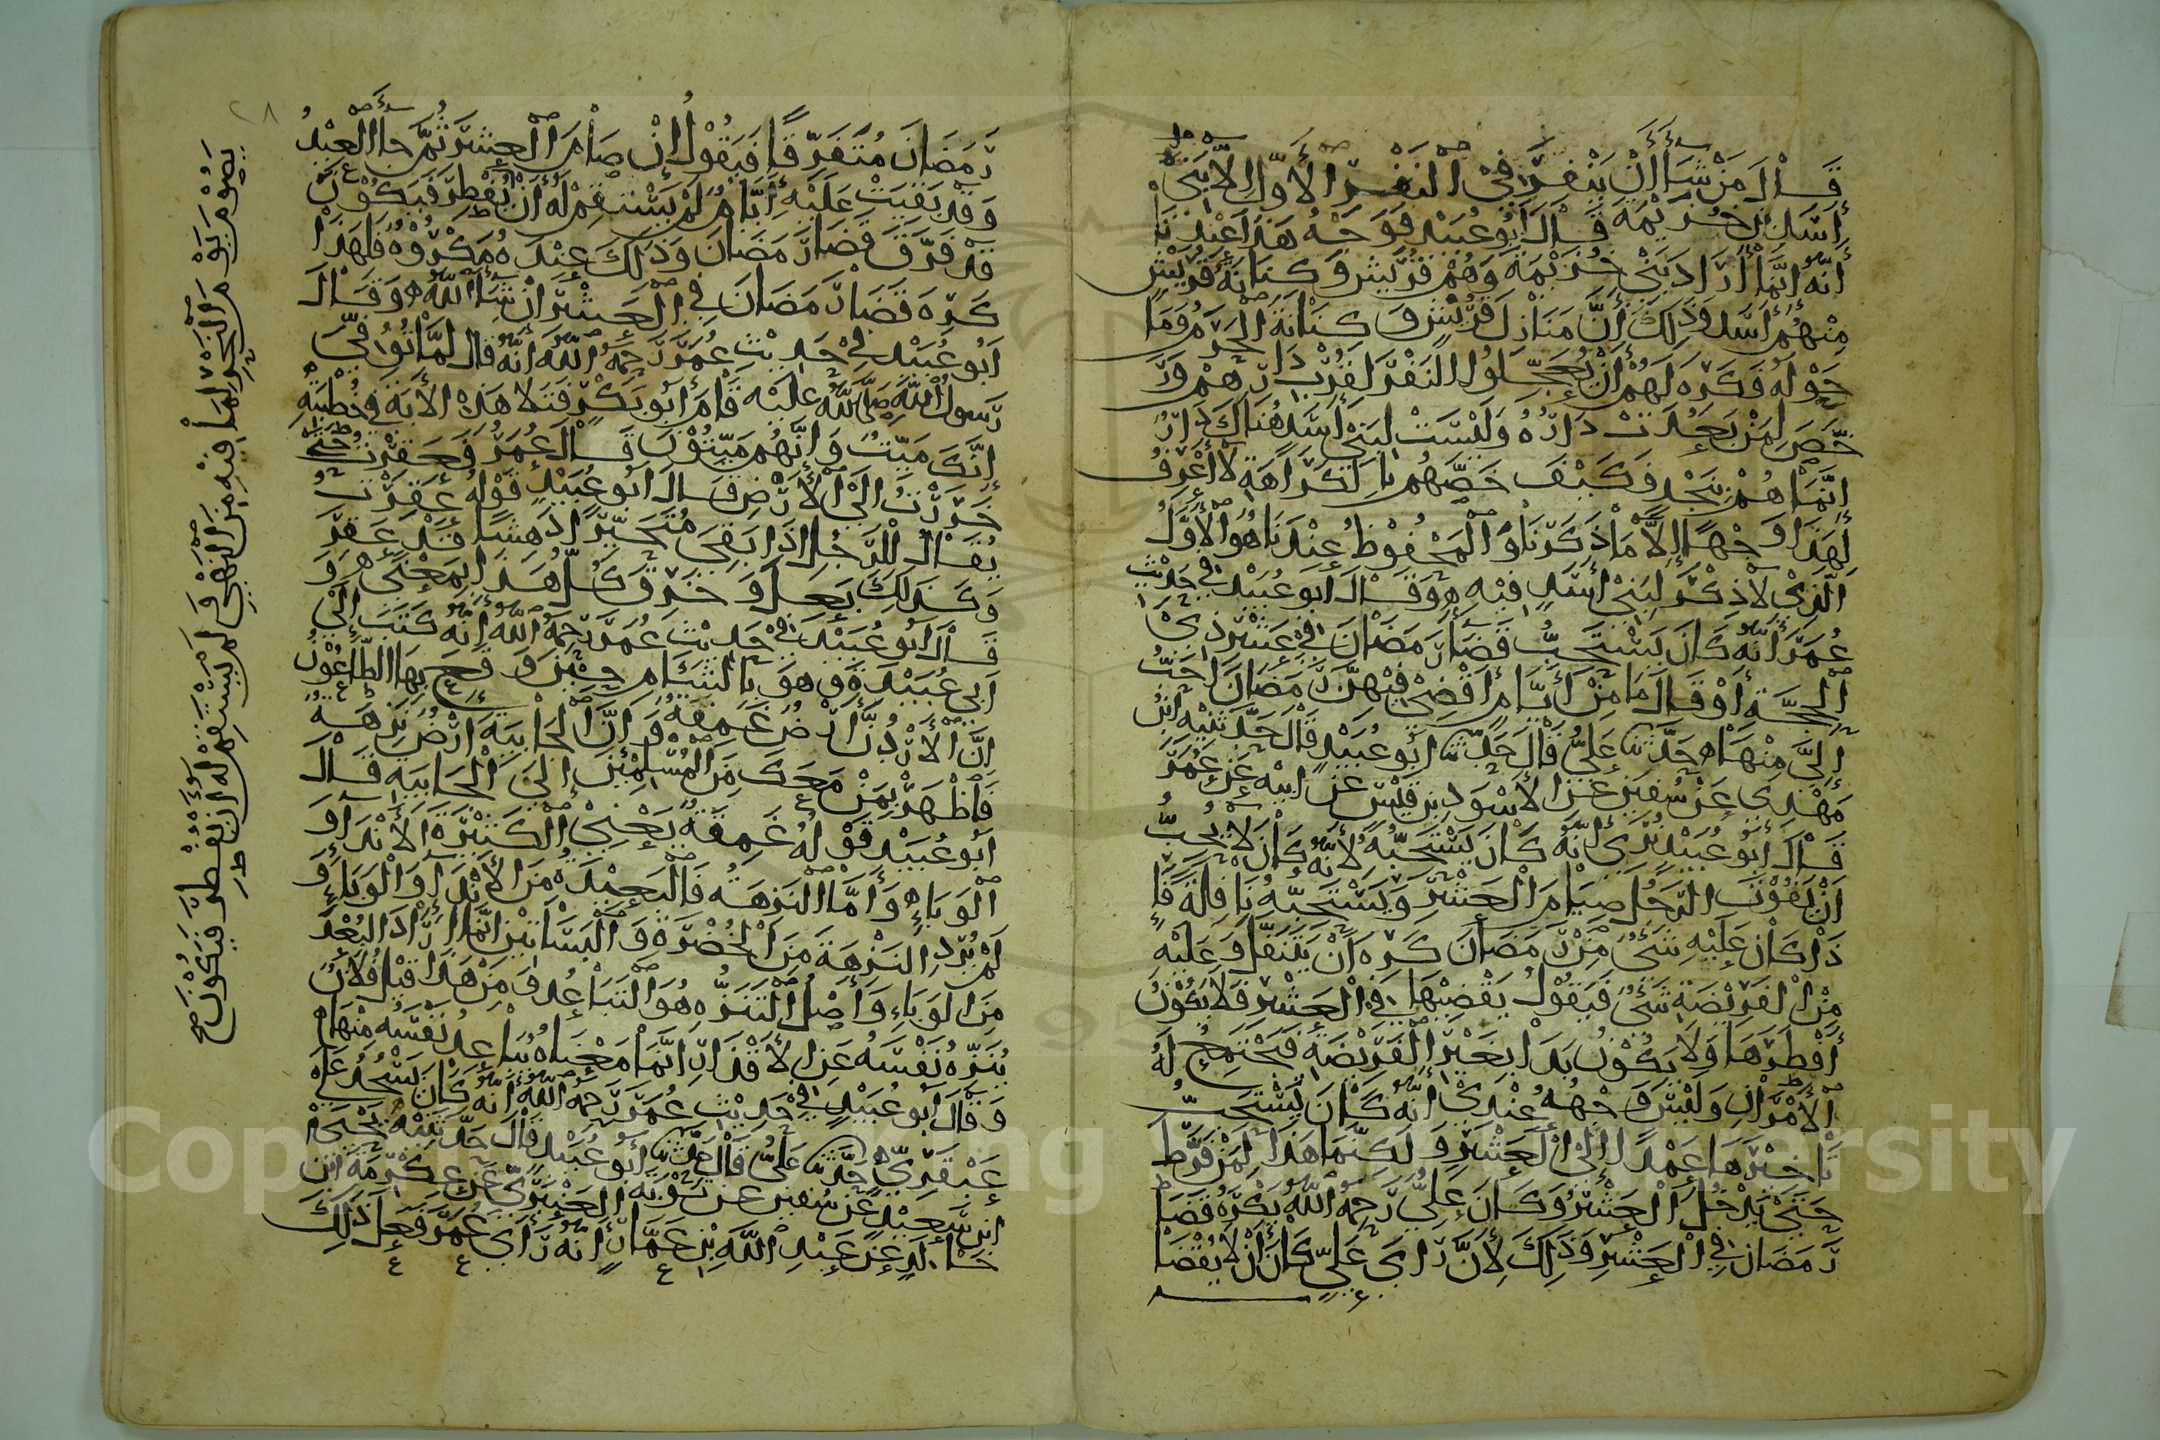 قَالَ مَنْ شَاءَ أَنْ يَنْفِرَ فِي النَّفْرِ الْأَوَّلِ إِلَّا بَنِي
أَسَدِ بْنِ خُزَيْمَةَ قَالَ أَبُو عُبَيْدٍ فَوَجْهُ هَذَا عِنْدَنَا
أَنَّهُ إِنَّمَا أَرَادَ بَنِي خُزَيْمَةَ وَهُمْ قُرَيْشٌ وَكِنَانَةُ قُرَيْشٌ
مِنْهُمْ أَسَدٌ وَذَلِكَ أَنَّ مَنَازِلَ قُرَيْشٍ وَكِنَانَةَ الْحَرَمُ وَمَا
حَوْلَهُ فَكَرِهَ لَهُمْ أَنْ يُعَجِّلُوا النَّفْرَ لِقُرْبِ دَارِهِمْ وَرَ
خَّصَ لِمَنْ بَعُدَتْ دَارُهُ وَلَيْسَتْ لِبَنِي أَسَدٍ هُنَاكَ دَارٌ
إِنَّمَا هُمْ بِنَجْدٍ فَكَيْفَ خَصَّهُمْ بِالْكَرَاهَةِ لَا أَعْرِفُ
لِهَذَا وَجْهًا إِلَّا مَا ذَكَرْنَا وَالْمَحْفُوظُ عِنْدَنَا هُوَ الْأَوَّلُ
الَّذِي لَا ذِكْرَ لِبَنِي أَسَدٍ فِيهِ ه وَقَالَ أَبُو عُبَيْدٍ فِي حَدِيثِ
عُمَرَ أَنَّهُ كَانَ يَسْتَحِبُّ قَضَاءَ رَمَضَانَ فِي عَشْرِ ذِي
الْحِجَّةِ أَوْ قَالَ مَا مِنْ أَيَّامٍ أَقْضِي فِيهِنَّ رَمَضَانَ أَحَبُّ
إِلَيَّ مِنْهَا ه حَدَّثَنَا عَلِيٌّ قَالَ حَدَّثَنَا أَبُو عُبَيْدٍ قَالَ حَدَّثَنِيهِ ابْنُ
مَهْدِيٍّ عَنْ سُفْيَنَ عَنِ الْأَسْوَدِ بْنِ قَيْسٍ عَنْ أَبِيهِ عَنْ عُمَرَ
قَالَ أَبُو عُبَيْدٍ نُرَى أَنَّهُ كَانَ يَسْتَحِبُّهُ لِأَنَّهُ كَانَ لَا يُحِبُّ
أَنْ يَفُوتَ الرَّجُلَ صِيَامُ الْعَشْرِ وَيَسْتَحِبُّهُ نَافِلَةً فَإِ
ذَا كَانَ عَلَيْهِ شَيْءٌ مِنْ رَمَضَانَ كَرِهَ أَنْ يَتَنَفَّلَ وَعَلَيْهِ
مِنَ الْفَرِيضَةِ شَيْءٌ فَيَقُولُ يَقْضِيهَا فِي الْعَشْرِ فَلَا يَكُونُ
أَفْطَرَهَا وَلَا يَكُونُ بَدَأَ بِغَيْرِ الْفَرِيضَةِ فَيَجْتَمِعُ لَهُ
الْأَمْرَانِ وَلَيْسَ وَجْهُهُ عِنْدِي أَنَّهُ كَانَ يَسْتَحِبُّ
تَأْخِيرَهَا عَمْدًا إِلَى الْعَشْرِ وَلَكِنَّمَا هَذَا لِمَنْ فَرَّطَ
حَتَّى يَدْخُلَ الْعَشْرُ وَكَانَ عَلِيٌّ رَحِمَهُ اللَّهُ يَكْرَهُ قَضَاءَ
رَمَضَانَ فِي الْعَشْرِ وَذَلِكَ لِأَنَّ رَأْيَ عَلِيٍّ كَانَ أَنْ لَا يُقْضَا
رَمَضَانَ مُتَفَرِّقًا فَيَقُولُ إِنْ صَامَ الْعَشْرَ ثُمَّ جَاءَ الْعِيدُ
وَقَدْ بَقِيَتْ عَلَيْهِ أَيَّامٌ لَمْ يَسْتَقِمْ لَهُ أَنْ يُفْطِرَ فَيَكُونَ
قَدْ فَرَّقَ قَضَاءَ رَمَضَانَ وَذَلِكَ عِنْدَهُ مَكْرُوهٌ فَلِهَذَا
كَرِهَ قَضَاءَ رَمَضَانَ فِي الْعَشْرِ إِنْ شَاءَ اللَّهُ ه وَقَالَ
أَبُو عُبَيْدٍ فِي حَدِيثِ عُمَرَ رَحِمَهُ اللَّهُ أَنَّهُ قَالَ لَمَّا تُوُفِّيَ
رَسُولُ اللَّهِ صَلَّى اللَّهُ عَلَيْهِ قَامَ أَبُو بَكْرٍ فَتَلَا هَذِهِ الْآيَةَ فِي خُطْبَتِهِ
إِنَّكَ مَيِّتٌ وَإِنَّهُمْ مَيِّتُونَ قَالَ عُمَرُ فَعَقِرْتُ حَتَّى
خَرَرْتُ إِلَى الْأَرْضِ قَالَ أَبُو عُبَيْدٍ قَوْلُهُ عَقِرْتُ
يُقَالُ لِلرَّجُلِ إِذَا بَقِيَ مُتَحَيِّرًا دَهِشًا قَدْ عَقِرَ
وَكَذَلِكَ بَعِلَ وَخَرِقَ كُلُّ هَذَا بِمَعْنًى ه وَ
قَالَ أَبُو عُبَيْدٍ فِي حَدِيثِ عُمَرَ رَحِمَهُ اللَّهُ أَنَّهُ كَتَبَ إِلَى
أَبِي عُبَيْدَةَ وَهُوَ بِالشَّامِ حِينَ وَقَعَ بِهَا الطَّاعُونُ
إِنَّ الْأُرْدُنَّ أَرْضٌ غَمِقَةٌ وَإِنَّ الْجَابِيَةَ أَرْضٌ نَزِهَةٌ
فَاظْهَرْ بِمَنْ مَعَكَ مِنَ الْمُسْلِمِينَ إِلَى الْجَابِيَةِ قَالَ
أَبُو عُبَيْدٍ قَوْلُهُ غَمِقَةٌ يَعْنِي الْكَثِيرَةَ الْأَنْدَاءِ وَ
الْوَبَاءِ ه وَأَمَّا النَّزِهَةُ فَالْبَعِيدَةُ مِنَ الْأَنْدَاءِ وَالْوَبَاءِ وَ
لَمْ يُرِدِ النُّزْهَةَ مِنَ الْخُضْرَةِ وَالْبَسَاتِينِ إِنَّمَا أَرَادَ الْبُعْدَ
مِنَ الْوَبَاءِ وَأَصْلُ التَّنَزُّهِ هُوَ التَّبَاعُدُ وَمِنْ هَذَا قِيلَ فُلَانٌ
يُنَزِّهُ نَفْسَهُ عَنِ الْأَقْذَارِ إِنَّمَا مَعْنَاهُ يُبَاعِدُ نَفْسَهُ مِنْهَا ه
وَقَالَ أَبُو عُبَيْدٍ فِي حَدِيثِ عُمَرَ رَحِمَهُ اللَّهُ أَنَّهُ كَانَ يَسْجُدُ عَلَى
عَبْقَرِيٍّ ه حَدَّثَنَا عَلِيٌّ قَالَ حَدَّثَنَا أَبُو عُبَيْدٍ قَالَ حَدَّثَنِيهِ يَحْيَى
ابْنُ سَعِيدٍ عَنْ سُفْيَنَ عَنْ تَوْبَةَ الْعَنْبَرِيِّ عَنْ عِكْرِمَةَ ابْنِ
خَالِدٍ عَنْ عَبْدِ اللَّهِ بْنِ عَمَّارٍ أَنَّهُ رَأَى عُمَرَ فَعَلَ ذَلِكَ
يَصُومُ يَوْمَ النَّحْرِ لِمَا فِيهِ مِنَ النَّهْيِ وَلَمْ يَسْتَقِمْ لَهُ أَنْ يُفْطِرَ فَيَكُونَ صح
Copyright © King Saud University